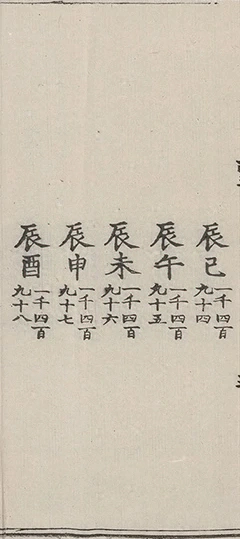 辰巳一千四百九十四
辰午一千四百九十五
辰未一千四百九十六
辰申一千四百九十七
辰酉一千四百九十八